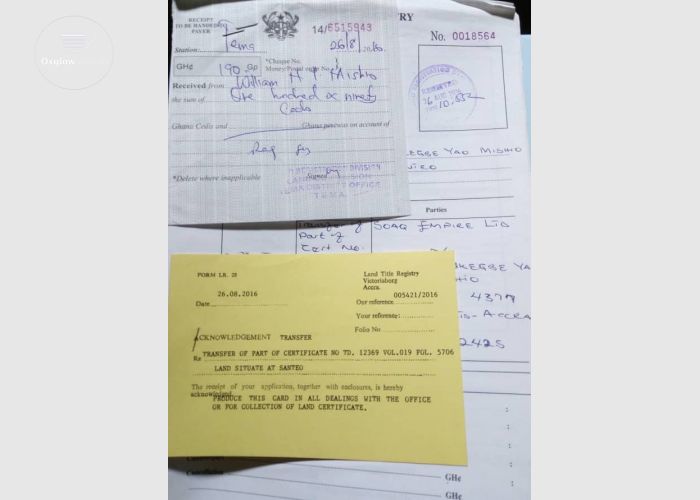 Oxglow
RECEIPT
TO BE HANDED TO
PAYER
14/6515943
Station: Tema 26/8/2016
GH¢ 190.00 *Cheque No.
Money/Postal order No.
Received from William
the sum of One hundred & ninety
Cedis
Ghana Cedis and Ghana pesewas on account of
Reg fee
*Delete where inapplicable Signed
DIVISION
DISTRICT OFFICE
TEMA
RY
No. 0018564
YAO MISHIO
Parties
Transfer of
Part of
Cert No.
SOAQ EMPIRE LTD
YA
4377
ACCRA
2425
FORM LR. 28
Land Title Registry
Victoriaborg
Accra.
26.08.2016
Date
005421/2016
Our reference
Your reference:
Folio No
ACKNOWLEDGEMENT TRANSFER
Re TRANSFER OF PART OF CERTIFICATE NO TD. 12369 VOL.019 FOL. 5706
LAND SITUATE AT SANTEO
The receipt of your application, together with enclosures, is hereby
PRODUCE THIS CARD IN ALL DEALINGS WITH THE OFFICE
OR FOR COLLECTION OF LAND CERTIFICATE.
GH¢
GH¢